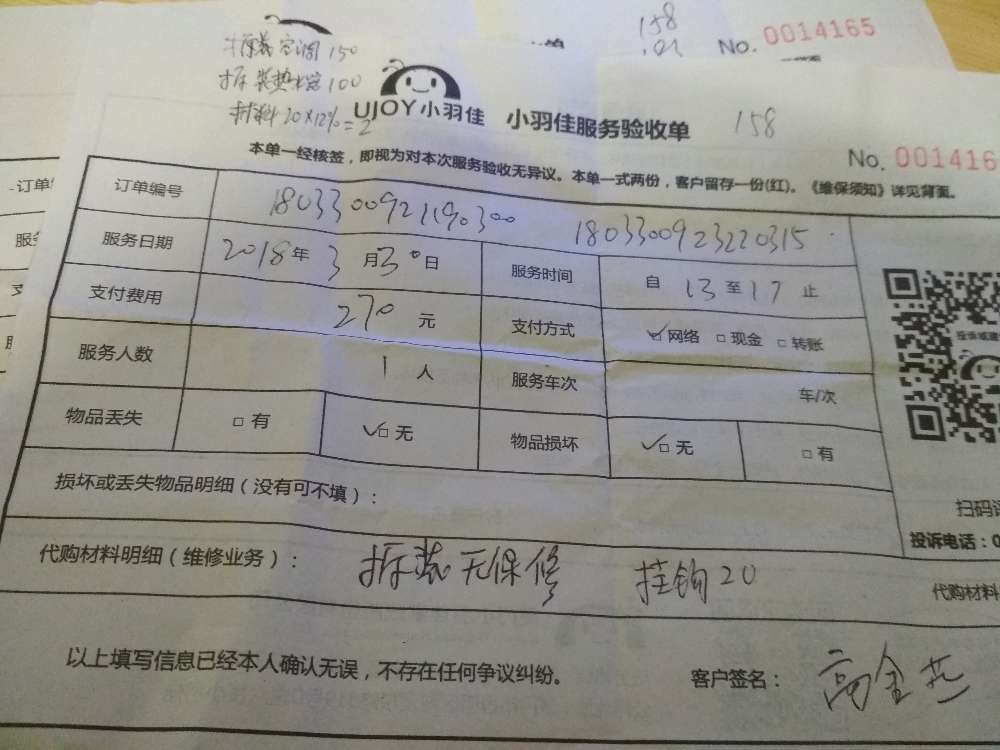 158
No. 0014165
拆装空调150
拆装热水器100
材料20×12%=2
UJOY小羽佳 小羽佳服务验收单 158
No. 001416
本单一经核签，即视为对本次服务验收无异议。本单一式两份，客户留存一份(红)。《维保须知》详见背面。
订单编号 1803300921190300 1803300923220315
服务日期 2018年3月30日 服务时间 自13至17止
支付费用 270元 支付方式 ☑网络 □现金 □转账
服务人数 1人 服务车次 车/次
物品丢失 □有 ☑无 物品损坏 ☑无 □有
损坏或丢失物品明细（没有可不填）：
扫码
投诉电话：0
代购材料明细（维修业务）： 拆装无保修 挂钩20 代购材料
以上填写信息已经本人确认无误，不存在任何争议纠纷。 客户签名：高金燕